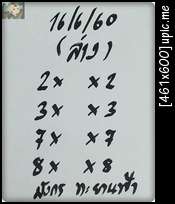 16/6/60
(ล่าง)
2x x2
3x x3
7x x7
8x x8
มังกร ทะยานฟ้า
[461x600] upic.me